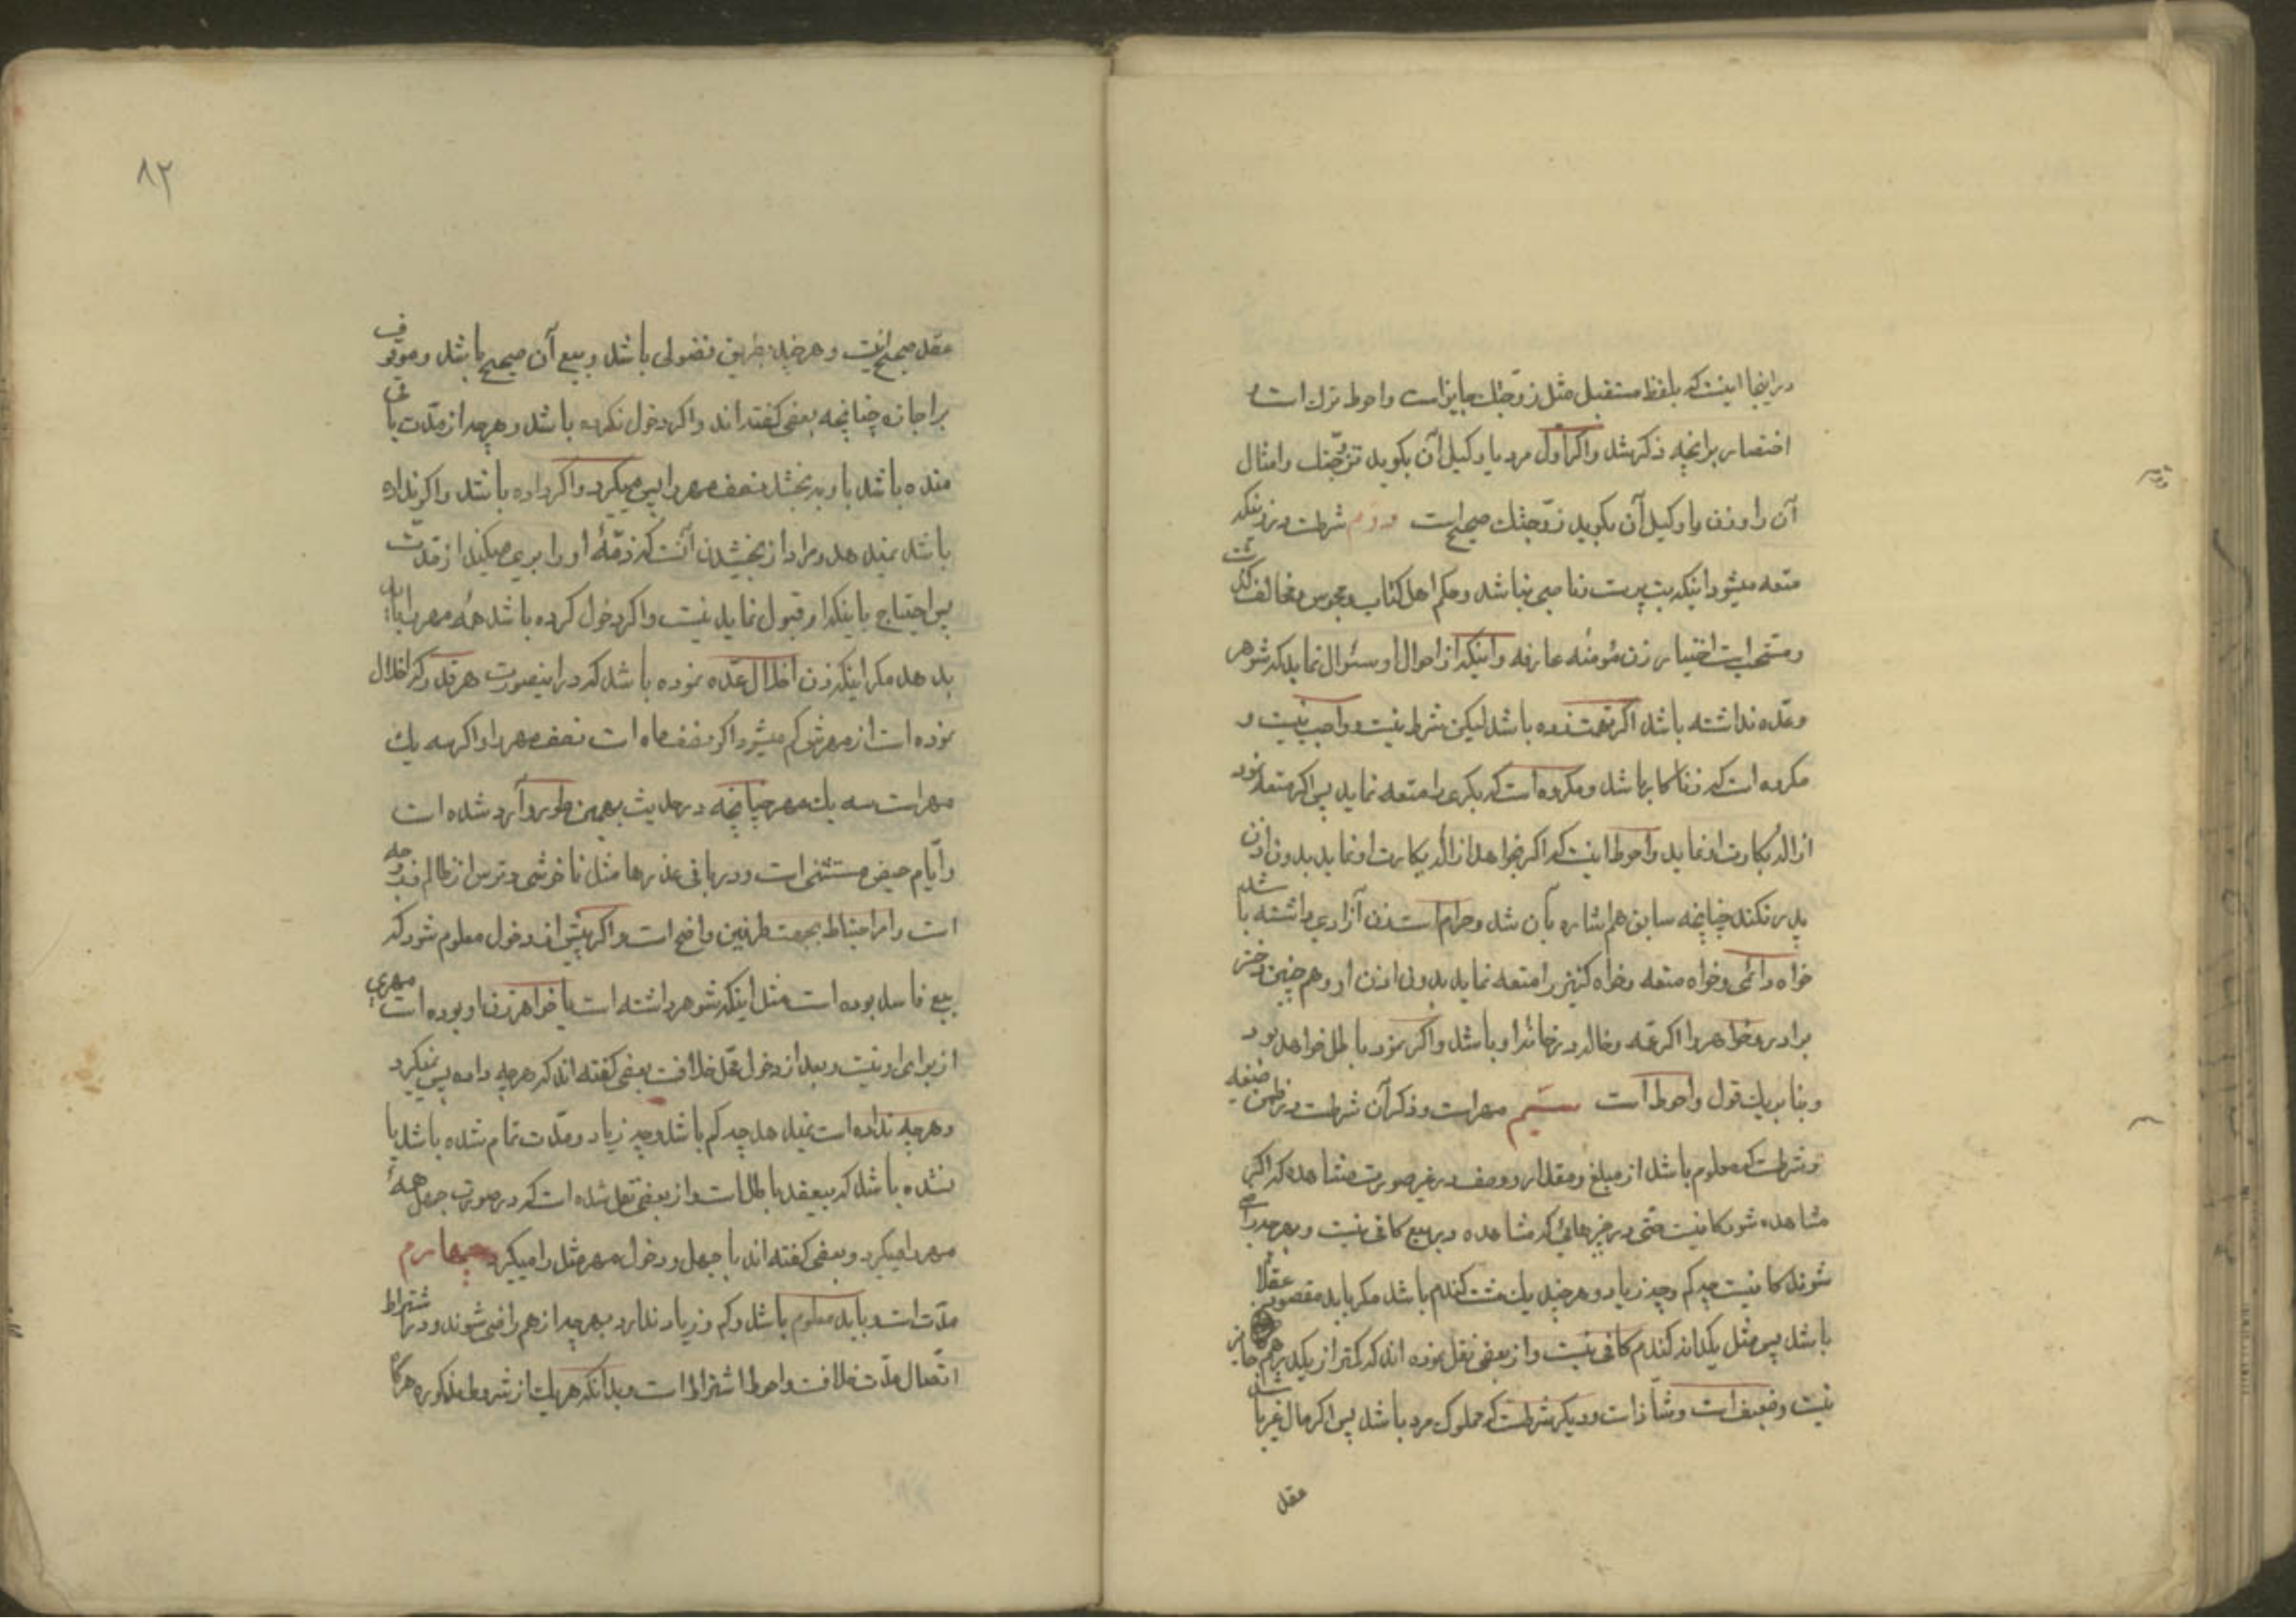 در اینجا اینست که بلفظ مستقبل مثل زوجتك جایز است و احوط ترك است و
اختصار بر انچه ذکر شد و اکر اول مرد یا وکیل آن بکوید تزوجتك و امثال
آن را و زن یا وکیل آن بکوید زوجتك صحیح است دوم شرطست در زنیکه
متعه میشود اینکه بت پرست و ناصبی نباشد و حکم اهل کتاب و مجوس و مخالف کذشت
و مستحب است اختیار زن مؤمنه عارفه و اینکه از احوال او سئوال نماید که شوهر
و عده نداشته باشد اکر تهمت زده باشد لیکن شرط نیست و واجب نیست و
مکروه است که زناکار باشد و مکروه است که بکری را متعه نماید پس اکر متعه نمود
ازاله بکارت او ننماید و احوط اینست که اکر بخواهد ازاله بکارت او نماید بدون اذن
پدر نکند چنانچه سابق هم اشاره بآن شد و حرام است زن آزادی داشته باشد
خواه دائمی و خواه متعه و خواه کنیز را متعه نماید بدون اذن او و هم چنین دختر
برادر و خواهر را اکر عمه و خاله در خانه او باشد و اکر نمود باطل خواهد بود
و بنا بر یك قول و احوط است سیّم مهر است و ذکر آن شرطست در ضمن صیغه
و شرطست که معلوم باشد از مبلغ و مقدار و وصف در غیر صورت مشاهده که اکر
مشاهده شود کافیست حتی در چیزهائی که مشاهده در بیع کافی نیست و بهر چه راضی
شوند کافیست چه کم و چه زیاد و هر چند یك مشت کندم باشد مکر باید مقصود عقلا
باشد پس مثل یکدانه کندم کافی نیست و از بعضی نقل نموده اند که کمتر از یکدرهم جایز
نیست و ضعیف است و شاذ است و دیکر شرطست که مملوك مرد باشد پس اکر مال غیر باشد
عقد
۸۲
عقد صحیح نیست و هر چند بطریق فضولی باشد و بیع آن صحیح باشد و موقوف
بر اجازه چنانچه بعضی کفته اند و اکر دخول نکرده باشد و هر چه از مدت باقی
مانده باشد باو ببخشد نصف مهر را پس میکیرد و اکر داده باشد و اکر نداده
باشد نمیدهد و مراد از بخشیدن آنست که ذمّهٔ او را بری میکند از مدت
پس احتیاج باینکه او قبول نماید نیست و اکر دخول کرده باشد همه مهر را باید
بدهد مکر اینکه زن اخلال عدّه نموده باشد که در اینصورت هر قدر که اخلال
نموده است از مهرش کم میشود اکر نصف ماه است نصف مهر را و اکر سه یك
مهر است سه یك مهر چنانچه در حدیث بهمین طور وارد شده است
و ایّام حیض مستثنی است و در باقی عذرها مثل ناخوشی و ترس از ظالم دو وجه
است و امر احتیاط بجهت طرفین واضح است و اکر پیش از دخول معلوم شود که
بیع فاسد بوده است مثل اینکه شوهر داشته است یا خواهر زن او بوده است مهری
از برای او نیست و بعد از دخول محل خلافست بعضی کفته اند که هر چه داده پس نمیکیرد
و هر چه نداده است نمیدهد چه کم باشد و چه زیاد و مدت تمام شده باشد یا
نشده باشد که بیعقد باطل است و از بعضی نقل شده است که در صورت جهل همهٔ
مهر را میکیرد و بعضی کفته اند با جهل و دخول مهر مثل را میکیرد چهارم
مدّت است و باید معلوم باشد و کم و زیاد ندارد بهر چه از هم راضی شوند و در اشتراط
اتّصال مدّت خلافست و احوط اشتراط است و بدانکه هر یك از شروط مذکوره هر کاه